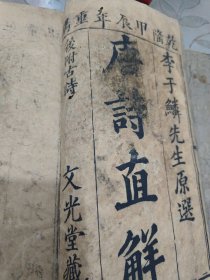 乾隆甲辰年重
李子鱗先生原選
唐詩直解
後附古詩
文光堂藏